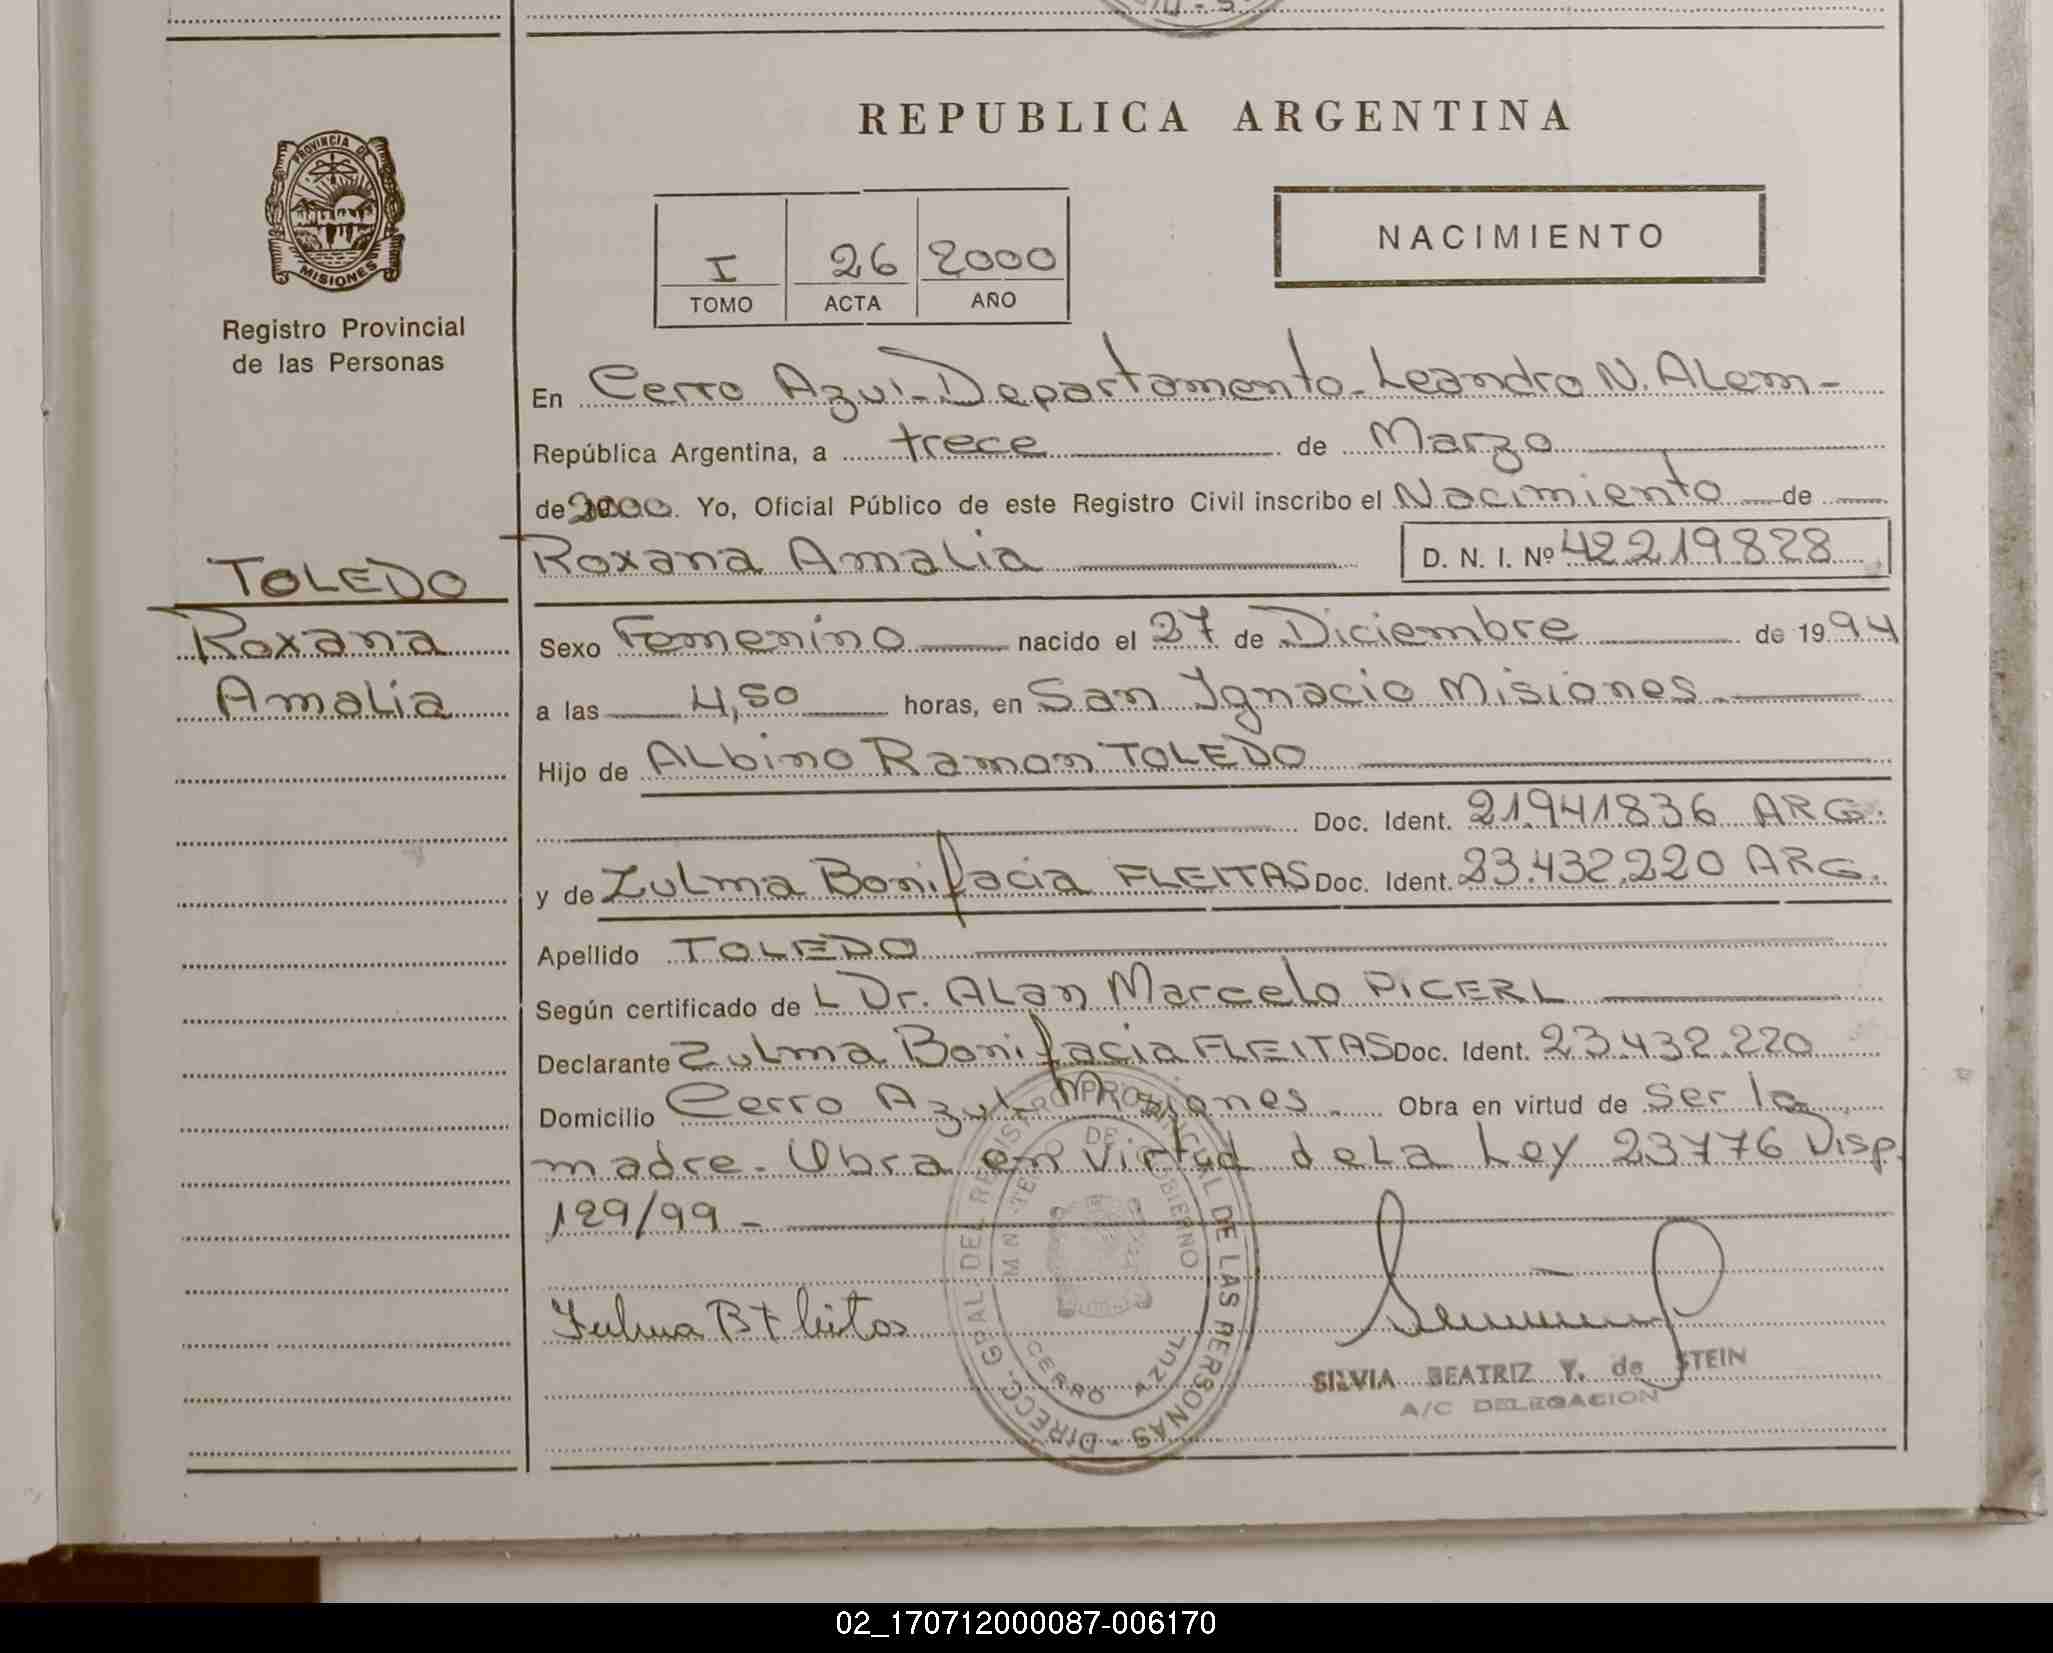 REPUBLICA ARGENTINA
PROVINCIA DE
MISIONES
Registro Provincial
de las Personas
I 26 2000
TOMO ACTA AÑO
NACIMIENTO
En Cerro Azul - Departamento - Leandro N. Alem -
República Argentina, a trece de Marzo
de 2000. Yo, Oficial Público de este Registro Civil inscribo el Nacimiento de
Roxana Amalia D. N. I. Nº 42219828
TOLEDO
Roxana
Amalia
Sexo Femenino nacido el 27 de Diciembre de 1994
a las 4,50 horas, en San Ignacio Misiones
Hijo de Albino Ramon TOLEDO
Doc. Ident. 21.941836 ARG.
y de Zulma Bonifacia FLEITAS Doc. Ident. 23.432.220 ARG.
Apellido TOLEDO
Según certificado de L Dr. Alan Marcelo PICERL
Declarante Zulma Bonifacia FLEITAS Doc. Ident. 23.432.220
Domicilio Cerro Azul - Misiones Obra en virtud de ser la
madre. Obra en virtud de La Ley 23776 Disp.
129/99 -
Zulma B Fleitas
DIRECC. GRAL. DEL REGISTRO PROVINCIAL DE LAS PERSONAS
MINISTERIO DE GOBIERNO
CERRO AZUL
SILVIA BEATRIZ Y. de STEIN
A/C DELEGACION
02_170712000087-006170